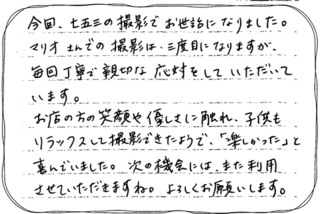 今回、七五三の撮影でお世話になりました。
マリオさんでの撮影は、三度目になりますが、
毎回丁寧で親切な応対をしていただいて
います。
お店の方の笑顔や優しさに触れ、子供も
リラックスして撮影できたようで、「楽しかった」と
喜んでいました。次の機会には、また利用
させていただきますね。よろしくお願いします。